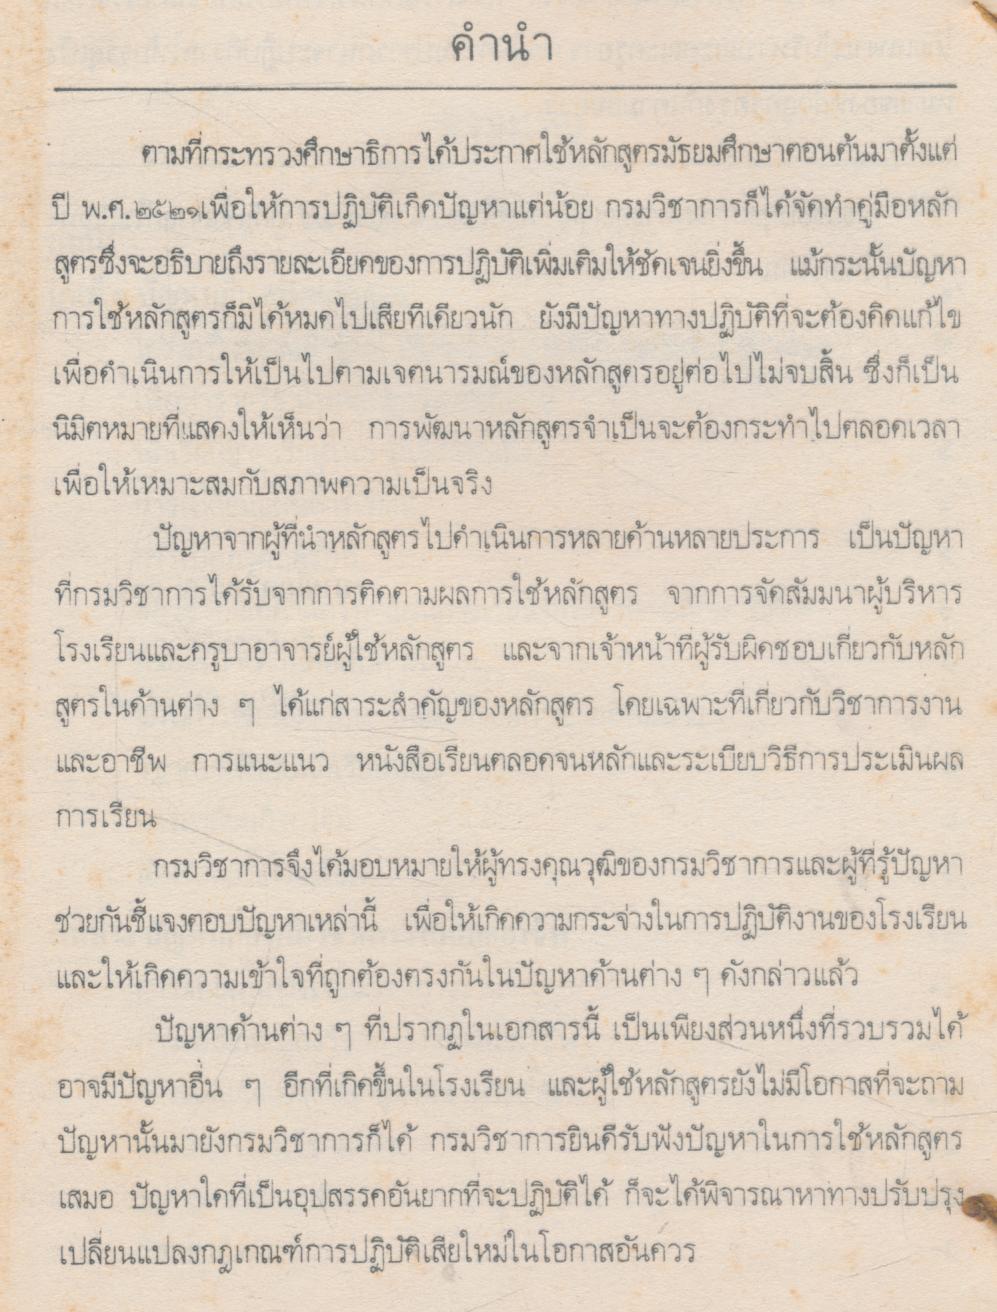 คำนำ
ตามที่กระทรวงศึกษาธิการได้ประกาศใช้หลักสูตรมัธยมศึกษาตอนต้นมาตั้งแต่
ปี พ.ศ.๒๕๒๑เพื่อให้การปฏิบัติเกิดปัญหาแต่น้อย กรมวิชาการก็ได้จัดทำคู่มือหลัก
สูตรซึ่งจะอธิบายถึงรายละเอียดของการปฏิบัติเพิ่มเติมให้ชัดเจนยิ่งขึ้น แม้กระนั้นปัญหา
การใช้หลักสูตรก็มิได้หมดไปเสียทีเดียวนัก ยังมีปัญหาทางปฏิบัติที่จะต้องคิดแก้ไข
เพื่อดำเนินการให้เป็นไปตามเจตนารมณ์ของหลักสูตรอยู่ต่อไปไม่จบสิ้น ซึ่งก็เป็น
นิมิตหมายที่แสดงให้เห็นว่า การพัฒนาหลักสูตรจำเป็นจะต้องกระทำไปตลอดเวลา
เพื่อให้เหมาะสมกับสภาพความเป็นจริง
ปัญหาจากผู้ที่นำหลักสูตรไปดำเนินการหลายด้านหลายประการ เป็นปัญหา
ที่กรมวิชาการได้รับจากการติดตามผลการใช้หลักสูตร จากการจัดสัมมนาผู้บริหาร
โรงเรียนและครูบาอาจารย์ผู้ใช้หลักสูตร และจากเจ้าหน้าที่ผู้รับผิดชอบเกี่ยวกับหลัก
สูตรในด้านต่าง ๆ ได้แก่สาระสำคัญของหลักสูตร โดยเฉพาะที่เกี่ยวกับวิชาการงาน
และอาชีพ การแนะแนว หนังสือเรียนตลอดจนหลักและระเบียบวิธีการประเมินผล
การเรียน
กรมวิชาการจึงได้มอบหมายให้ผู้ทรงคุณวุฒิของกรมวิชาการและผู้ที่รู้ปัญหา
ช่วยกันชี้แจงตอบปัญหาเหล่านี้ เพื่อให้เกิดความกระจ่างในการปฏิบัติงานของโรงเรียน
และให้เกิดความเข้าใจที่ถูกต้องตรงกันในปัญหาด้านต่าง ๆ ดังกล่าวแล้ว
ปัญหาด้านต่าง ๆ ที่ปรากฏในเอกสารนี้ เป็นเพียงส่วนหนึ่งที่รวบรวมได้
อาจมีปัญหาอื่น ๆ อีกที่เกิดขึ้นในโรงเรียน และผู้ใช้หลักสูตรยังไม่มีโอกาสที่จะถาม
ปัญหานั้นมายังกรมวิชาการก็ได้ กรมวิชาการยินดีรับฟังปัญหาในการใช้หลักสูตร
เสมอ ปัญหาใดที่เป็นอุปสรรคอันยากที่จะปฏิบัติได้ ก็จะได้พิจารณาหาทางปรับปรุง
เปลี่ยนแปลงกฎเกณฑ์การปฏิบัติเสียใหม่ในโอกาสอันควร